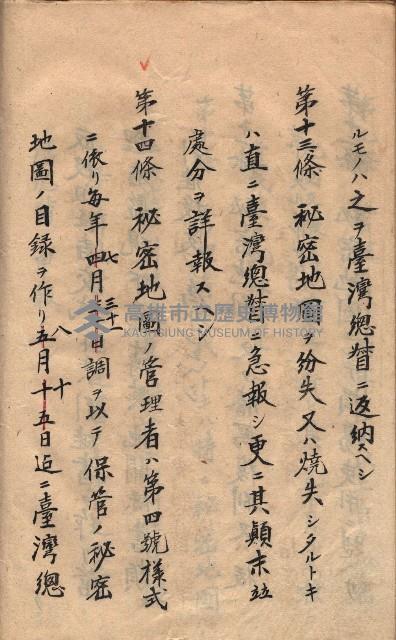 ルモノハ之ヲ臺灣總督ニ返納スヘシ
第十三條 秘密地圖ヲ紛失又ハ燒失シタルトキ
ハ直ニ臺灣總督ニ急報シ更ニ其顛末竝
處分ヲ詳報スヘシ
第十四條 秘密地圖ノ管理者ハ第四號樣式
ニ依リ每年七月三十一日調ヲ以テ保管ノ秘密
地圖ノ目錄ヲ作リ八月十日迄ニ臺灣總
高雄市立歷史博物館
KAOHSIUNG MUSEUM OF HISTORY